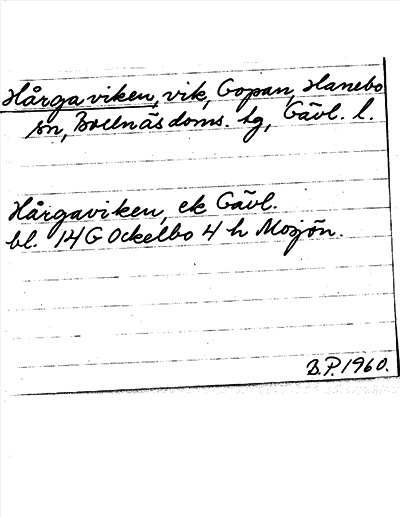 Hårgaviken, vik, Gopan, Hanebo
sn, Bollnäs doms. tg, Gävl. l.
Hårgaviken, ek Gävl.
bl. 14G Ockelbo 4 h Mosjön.
B.P. 1960.